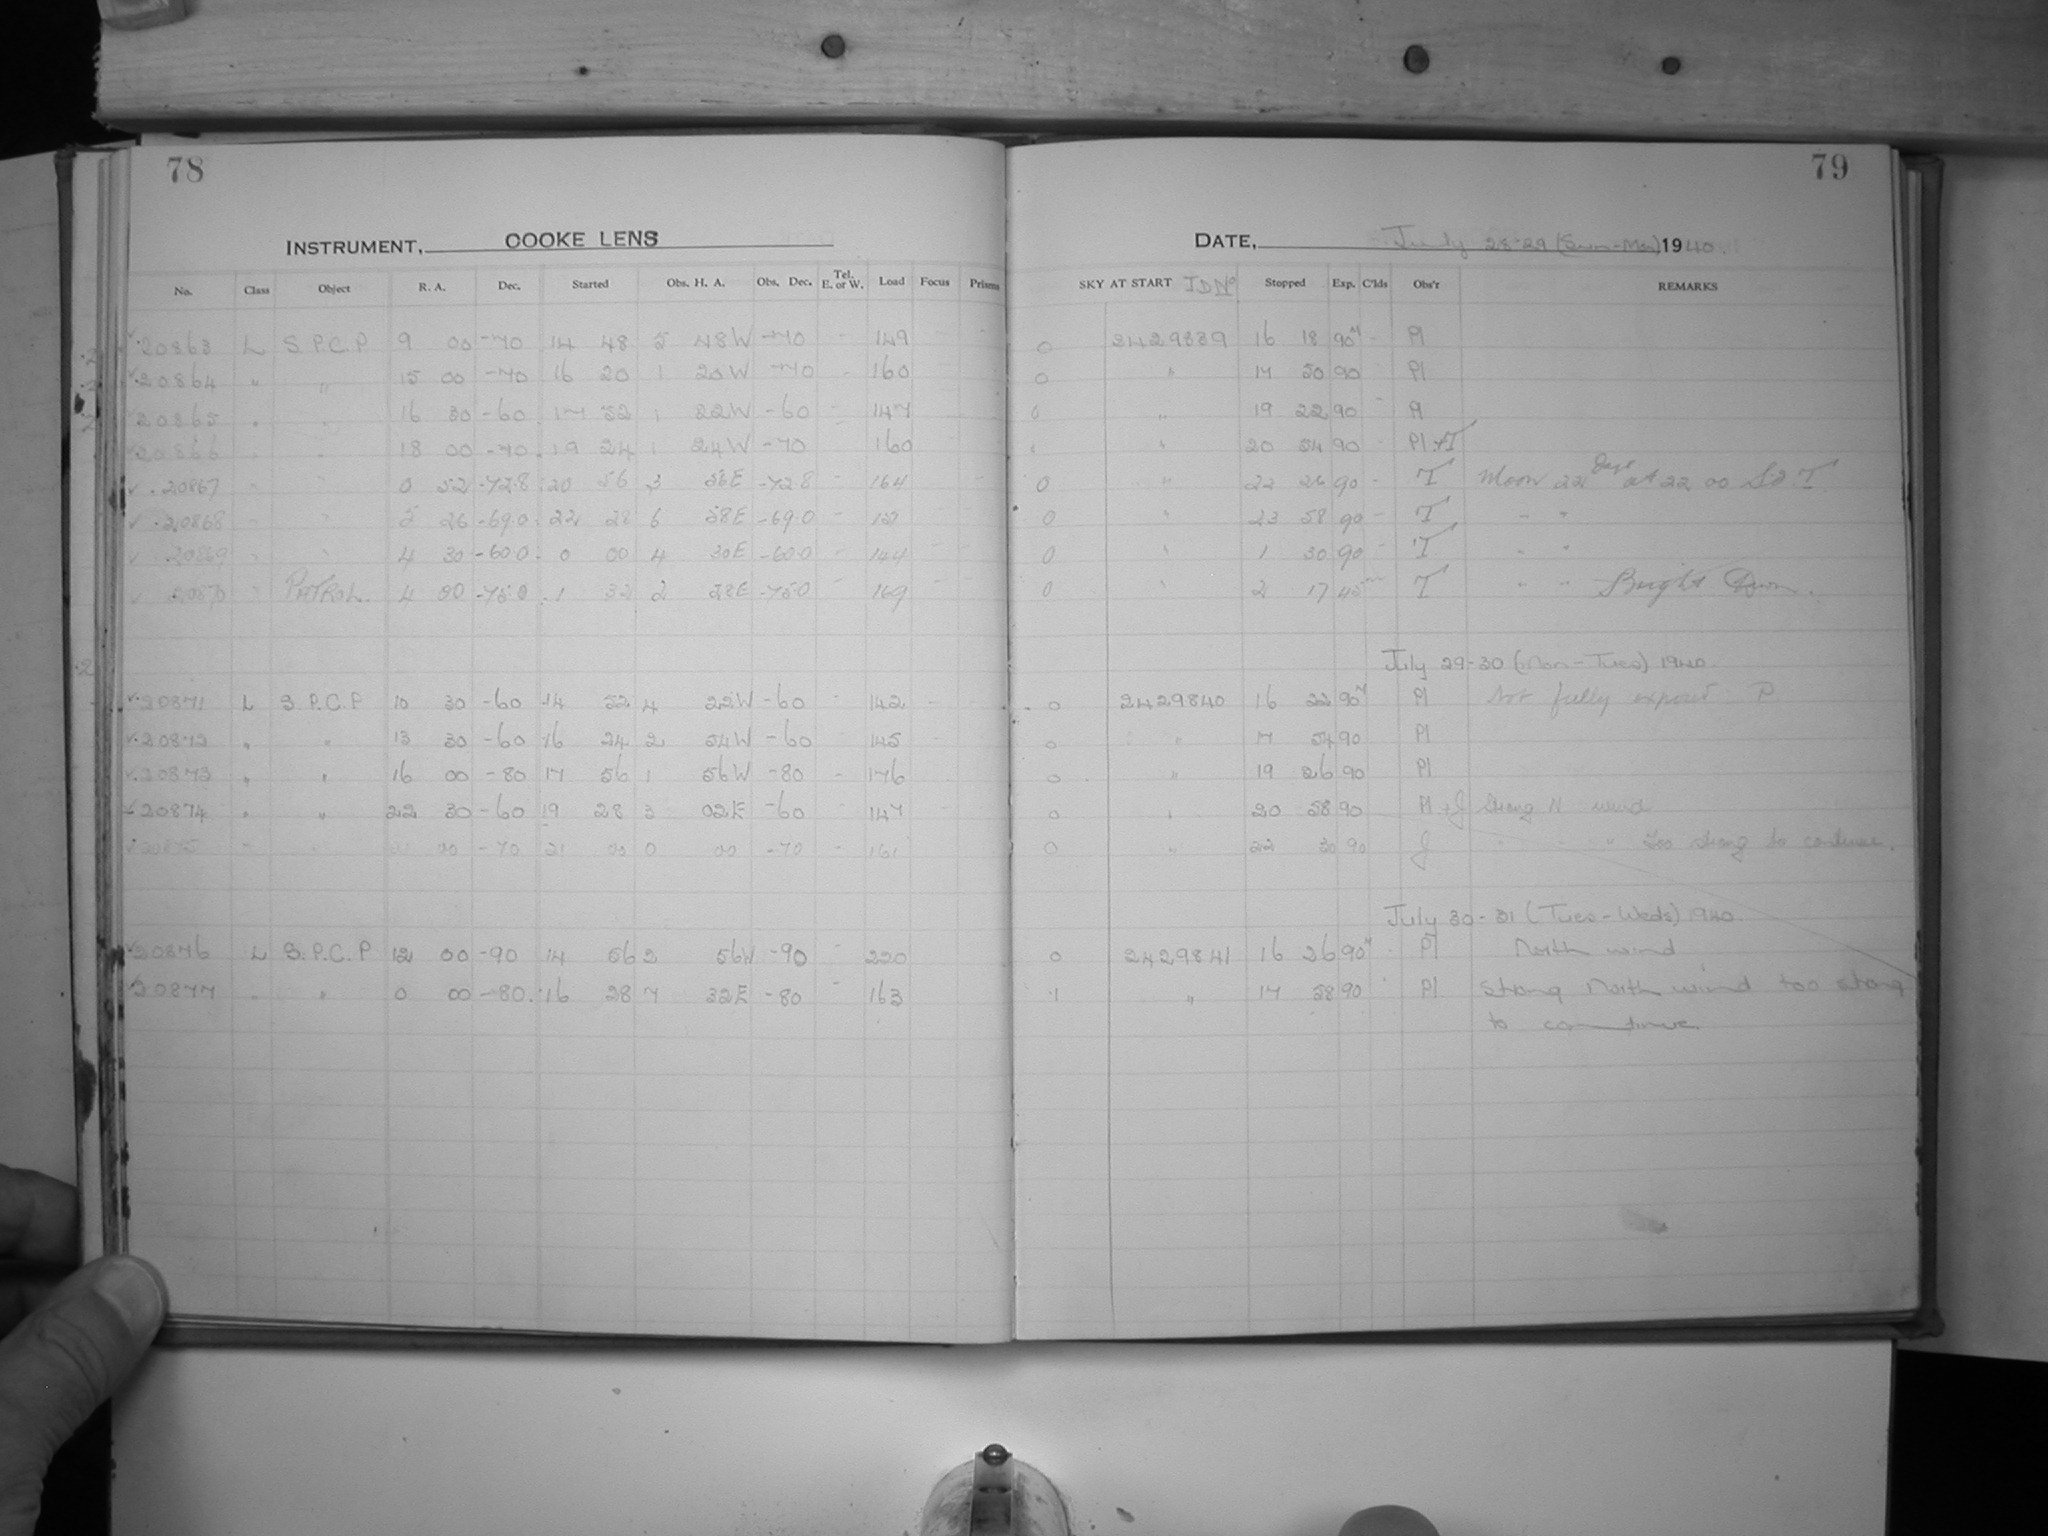 78
79
INSTRUMENT, COOKE LENS
DATE, July 28-29 (Sun-Mon) 1940.
No. Class Object R. A. Dec. Started Obs. H. A. Obs. Dec. Tel. E. or W. Load Focus Prisms SKY AT START ID No Stopped Exp. C'lds Obs'r REMARKS
20863 L S.P.C.P 9 00 -70 14 48 5 48W -70 - 149 0 2429839 16 18 90m - Pl
20864 " " 15 00 -70 16 20 1 20W -70 - 160 0 " 17 50 90 Pl
20865 " " 16 30 -60 17 52 1 22W -60 - 147 0 " 19 22 90 - Pl
20866 " " 18 00 -70 19 24 1 24W -70 160 " 20 54 90 Pl+T
20867 " " 0 52 -72.8 20 56 3 56E -72.8 - 164 0 " 22 26 90 - T Moon 22 days at 22 00 T
20868 " " 26 -69.0 22 28 6 58E -69.0 - 0 " 23 58 90 - T " "
20869 " " 4 30 -60.0 0 00 4 30E -60.0 - 144 0 " 1 30 90 - T " "
20870 " PATROL. 4 00 -75.0 1 32 2 28E -75.0 - 169 0 " 2 17 45m T " " Bright Dawn.
July 29-30 (Mon-Tues) 1940.
20871 L S.P.C.P 10 30 -60 14 52 4 22W -60 - 142 0 2429840 16 22 90m Pl Not fully exposed P
20872 " " 13 30 -60 16 24 2 54W -60 145 0 " 17 54 90 Pl
20873 " " 16 00 -80 17 56 1 56W -80 - 176 0 " 19 26 90 Pl
20874 " " 22 30 -60 19 28 3 02E -60 - 147 0 " 20 58 90 Pl+J Strong N wind
20875 " " 21 00 -70 21 00 0 00 -70 - 161 0 " 22 30 90 J " " " Too strong to continue.
July 30-31 (Tues-Weds) 1940.
20876 L S.P.C.P 12 00 -90 14 56 2 56W -90 - 220 0 2429841 16 26 90m Pl North wind
20877 " " 0 00 -80 16 28 7 32E -80 - 163 1 " 17 58 90 Pl Strong North wind too strong
to continue